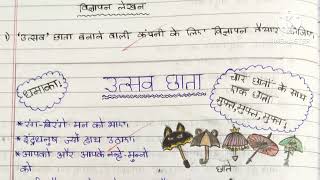 विज्ञापन लेखन
1) 'उत्सव' छाता बनाने वाली कंपनी के लिए विज्ञापन तैयार कीजिए
धमाका
उत्सव छाता
चार छातों के साथ
एक छाता
मुफ्त, मुफ्त, मुफ्त।
* रंग-बिरंगे मन को भाए,
* इंद्रधनुष ज्यों हाथ उठाए।
* आपको और आपके नन्हे-मुन्नों
को
छाते